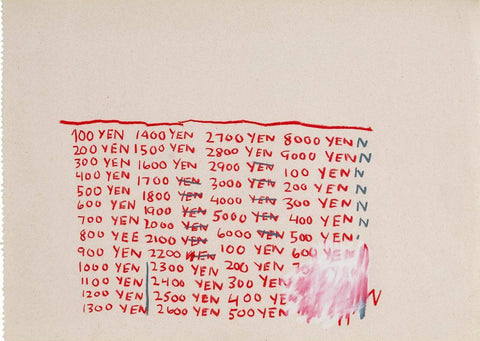 100 YEN
200 YEN
300 YEN
400 YEN
500 YEN
600 YEN
700 YEN
800 YEE
900 YEN
1000 YEN
1100 YEN
1200 YEN
1300 YEN
1400 YEN
1500 YEN
1600 YEN
1700 YEN
1800 YEN
1900 YEN
2000 YEN
2100 YEN
2200 YEN
2300 YEN
2400 YEN
2500 YEN
2600 YEN
2700 YEN
2800 YEN
2900 YEN
3000 YEN
4000 YEN
5000 YEN
6000 YEN
100 YEN
200 YEN
300 YEN
400 YEN
500 YEN
8000 YEN N
9000 YEN N
100 YEN N
200 YEN N
300 YEN N
400 YEN N
500 YEN
600